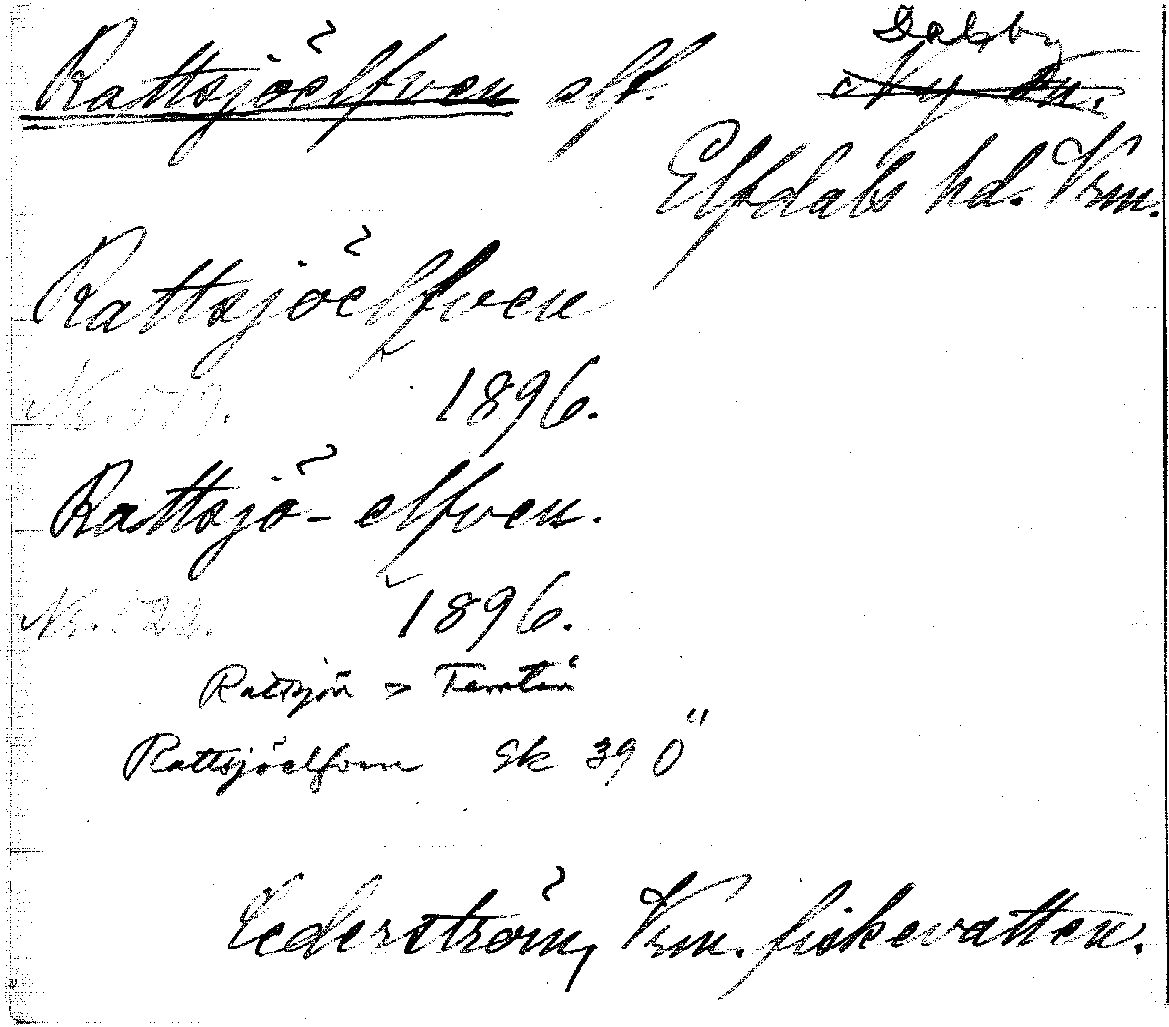 Rattsjöelfven elf. Dalsby
Ny sn.
Elfdals hd. Vrm.
Rattsjöelfven
Nr. 519. 1896.
Rattsjö-elfven.
Nr. 522. 1896.
Rattsjön > Temtin
Rattsjöelfven Ek 39 Ö
Cederström, Vrm. fiskevatten.